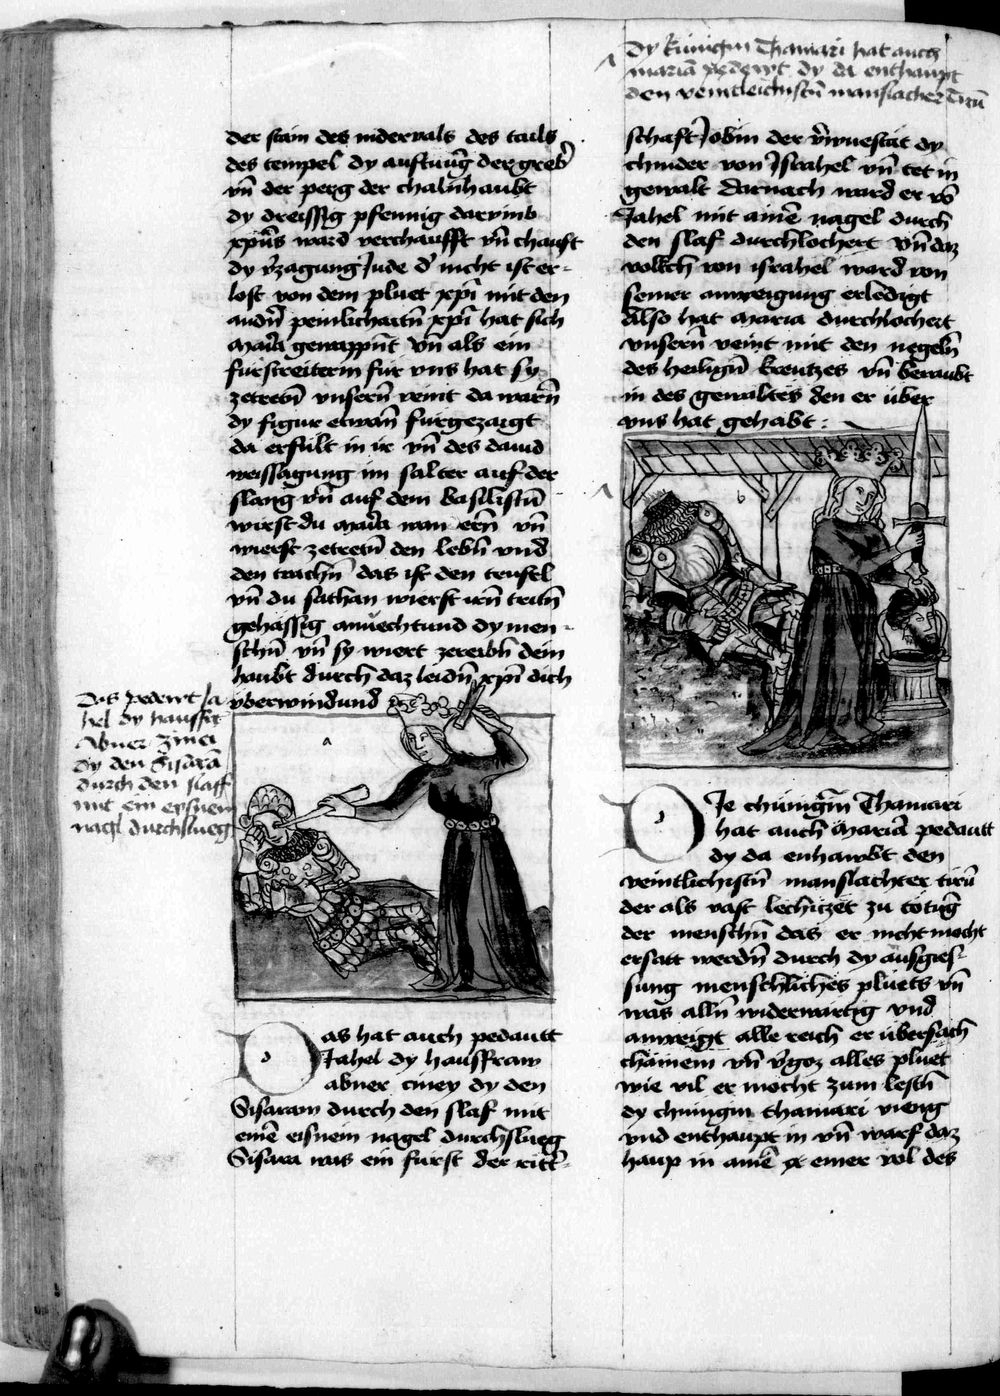 der stain des nidervals des tails
des tempel dy auftuu̅g der greb̅
vn̅ der perg der chaln̅haubt
dy dreissig pfennig darvmb
xp̅us ward verchaufft vn̅ chauft
dy v̕zagung Jude d̕ nicht ist er-
lost von dem pluet xp̅i mit den
andn̅ peinlichaitn̅ xp̅i hat sich
maria gewappn̅t vn̅ als ein
furstreiterin fur vns hat sy
zetretn̅ vnsern̅ veint da warn̅
dy figur etwan̅ furgezaigt
da erfult in ir vn̅ des dauid
weissagung im salter auf der
slang vn̅ auf dem basiliscu̅
wirst du maria wan ern̅ vn̅
wierst zetretn̅ den lebn̅ vnd
den trachn̅ das ist den teufel
vn̅ du sathan wierst irn̅ tritn̅
gehassig anuechtund dy men-
schn̅ vn̅ sy wiert zereibn̅ dein
haubt durch daz leidn̅ xp̅i dich
vberwindund
Das pedewt Ja
hel dy hausfr
Abner Zinei
dy den Sisara̅
durch den slaff
mit ein eysnem
nagl durchslueg
a
Das hat auch pedautt
Jahel dy hausfraw
abner ciney dy den
Sisaram durch den slaf mit
eine̅ eisnein nagel durchslueg
Sisara was ein furst der ritt̕-
Dy kunigin Thamari hat auch
maria̅ pedewt dy da enthaupt
den veintleichistn̅ manslacher Ciru̅
schaft Jobin der v̕wuestat dy
chinder von Israhel vn̅ tet in
gewalt Darnach ward er vo̅
Jahel mit aine̅ nagel durch
den slaf durchlochert vn̅ daz
volkch von israhel ward von
seiner anweigung erledigt
Also hat maria durchlochert
vnsern̅ veint mit den negeln̅
des heilign̅ kreutzes vn̅ beraubt
in des gewaltes den er uber
vns hat gehabt :
b
Die chunigin̅ Thamari
hat auch maria̅ pedautt
dy da enhawbt den
veintlichistn̅ manslachter ciru̅
der als vast lechitzet zu totug̅
der menschn̅ das er nicht mocht
ersatt werdn̅ durch dy ausgies-
sung menschliches pluets vn̅
was alln̅ widerwartig vnd
anweigt alle reich er ubersach
chainem vn̅ v̕goz alles pluet
wie vil er mocht zum lestn̅
dy chunigin thamari vieng
vnd enthaupt in vn̅ warf daz
haup in aine̅ emer vol des